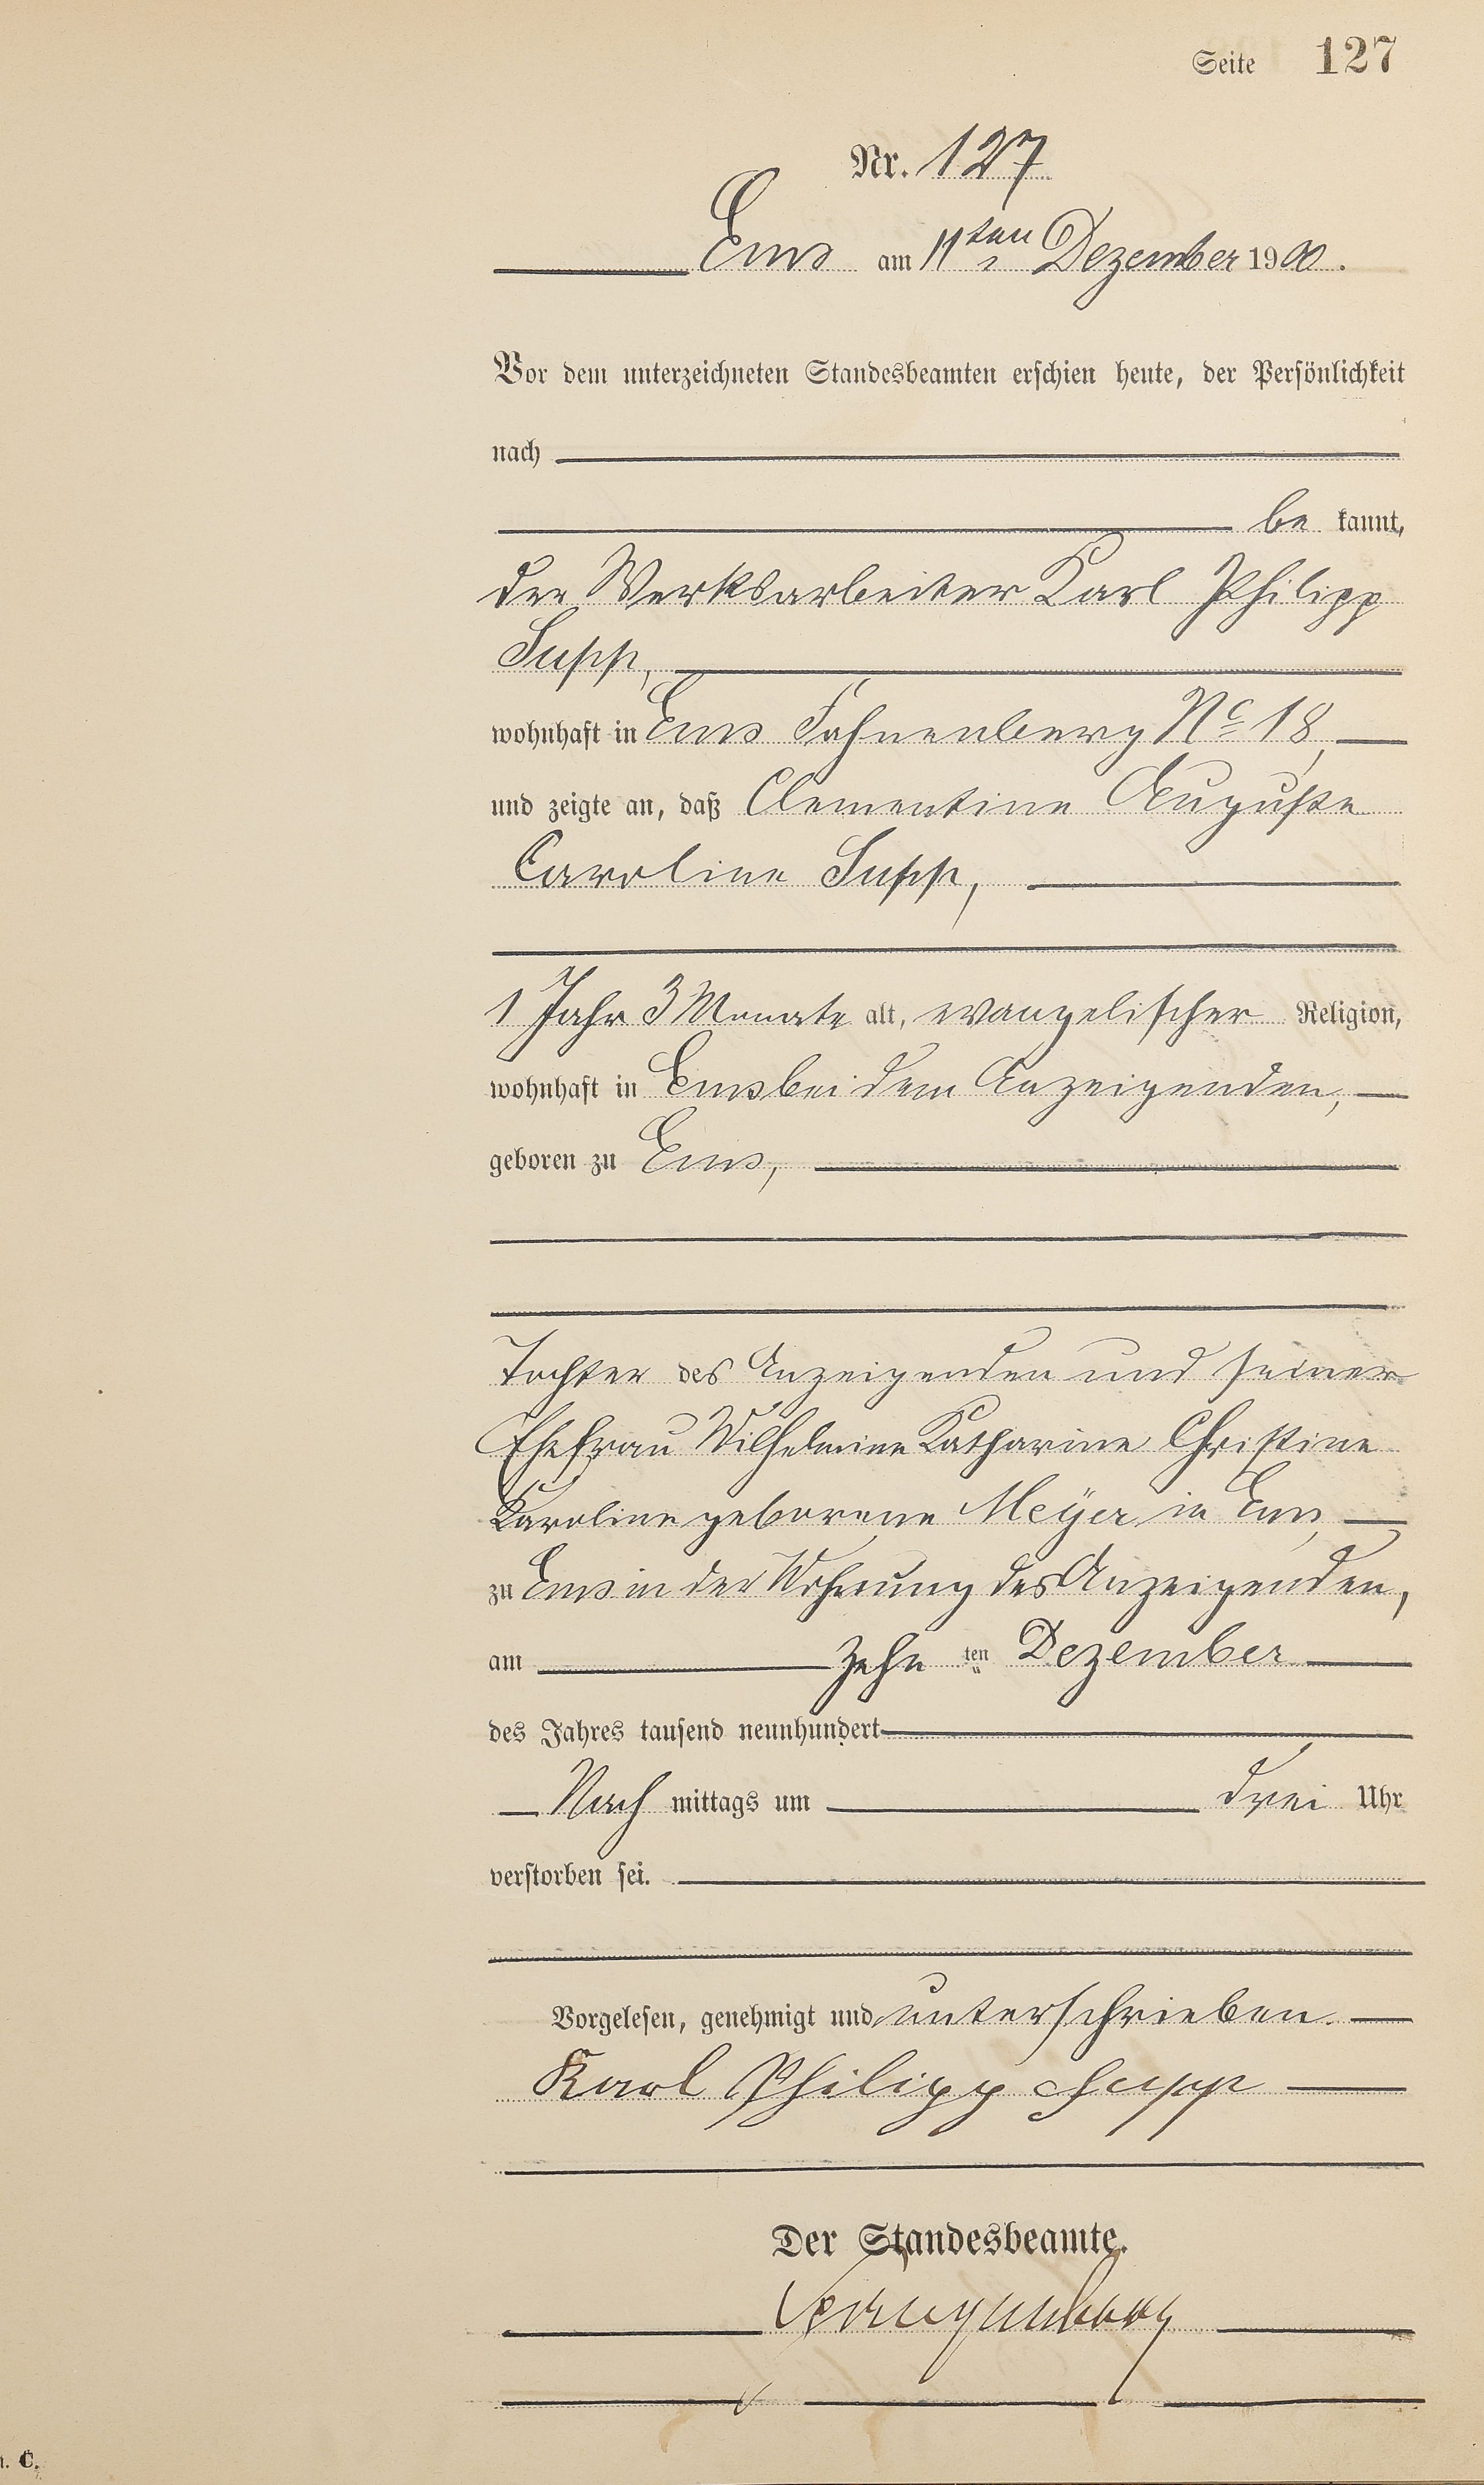 Seite 127
Nr. 127
Ems am 11ten Dezember 1900.
Vor dem unterzeichneten Standesbeamten erschien heute, der Persönlichkeit
nach
be kannt,
der Werksarbeiter Karl Philipp
Supp,
wohnhaft in Ems Fahnenberg No 18,
und zeigte an, daß Clementine Auguste
Caroline Supp,
1 Jahr 3 Monate alt, evangelischer Religion,
wohnhaft in Ems bei dem Anzeigenden,
geboren zu Ems,
Tochter des Anzeigenden und seiner
Ehefrau Wilhelmine Katharine Christine
Karoline geborene Meÿer in Ems,
zu Ems in der Wohnung des Anzeigenden,
am zehn ten Dezember
des Jahres tausend neunhundert
Nach mittags um drei Uhr
verstorben sei.
Vorgelesen, genehmigt und unterschrieben.
Karl Philipp Supp
Der Standesbeamte.
C.